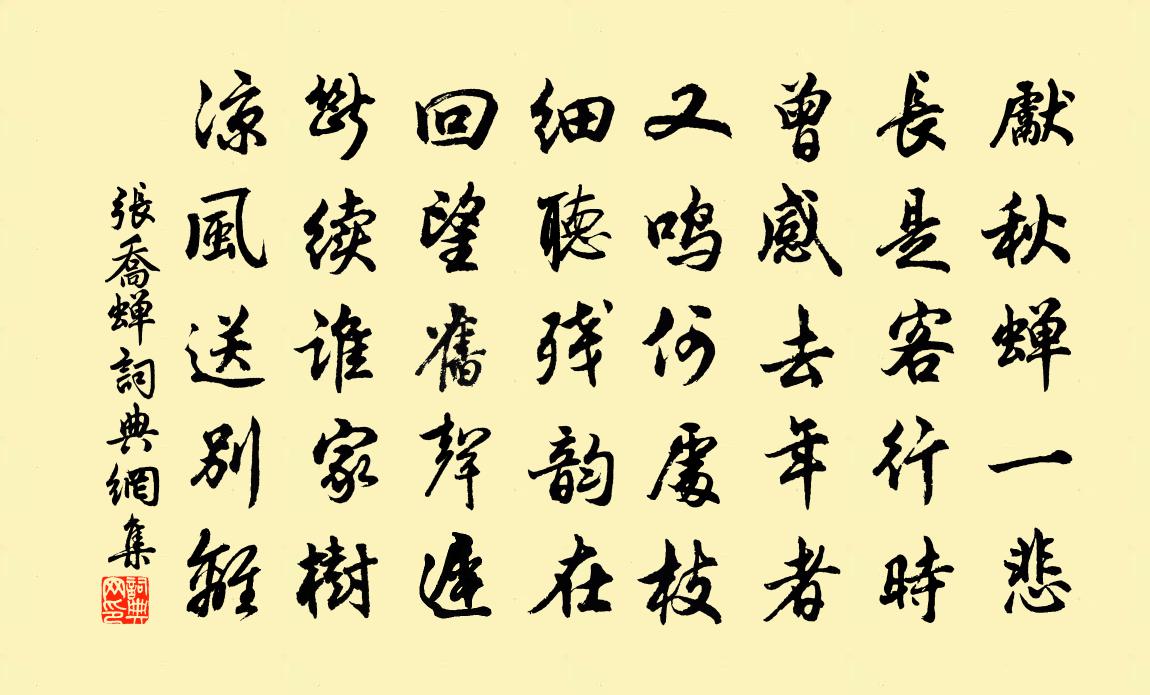 獻秋蝉一悲
長是客行時
曾感去年者
又鸣何處枝
细聽残韵在
回望舊聲遲
斷续誰家樹
涼風送别離
張喬蝉詞典網集
詞典
网印